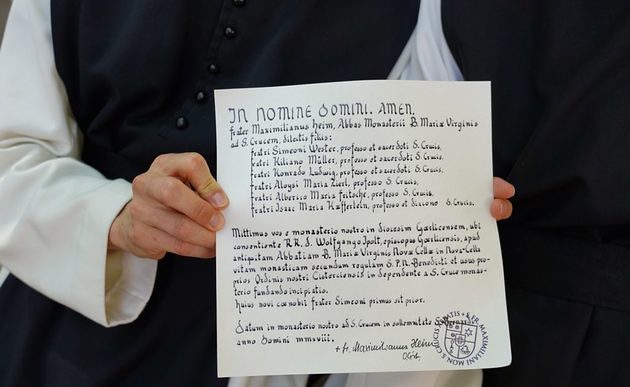 IN NOMINE DOMINI. AMEN.
frater Maximilianus Heim, Abbas Monasterii B. Mariæ Virginis
ad S. Crucem, dilectis filiis:
fratri Simeoni Wester, professo et sacerdoti S. Crucis,
fratri Kiliano Müller, professo et sacerdoti S. Crucis,
fratri Konrado Ludwig, professo et sacerdoti S. Crucis,
fratri Aloysi Maria Zierl, professo S. Crucis,
fratri Alberico Maria Fritsche, professo S. Crucis,
fratri Isaac Maria Käfferlein, professo et diacono S. Crucis.
Mittimus vos e monasterio nostro in diœcesim Gœrlicensem, ubi
consentiente RR. D. Wolfgango Ipolt, episcopus Gœrlicensis, apud
antiquitam Abbatiam B. Mariæ Virginis Novæ Cellæ in Nova-Cella
vitam monasticam secundum regulam S. P. N. Benedicti et usus pro-
prios Ordinis nostri Cisterciensis in dependente a S. Cruce monas-
terio fundando incipiatis.
Huius novi cœnobii frater Simeoni primus sit prior.
Datum in monasterio nostro ad S. Crucem in sollemnitate S. Bernardi
anno Domini mmxviii.
+ fr. Maximilianus Heim